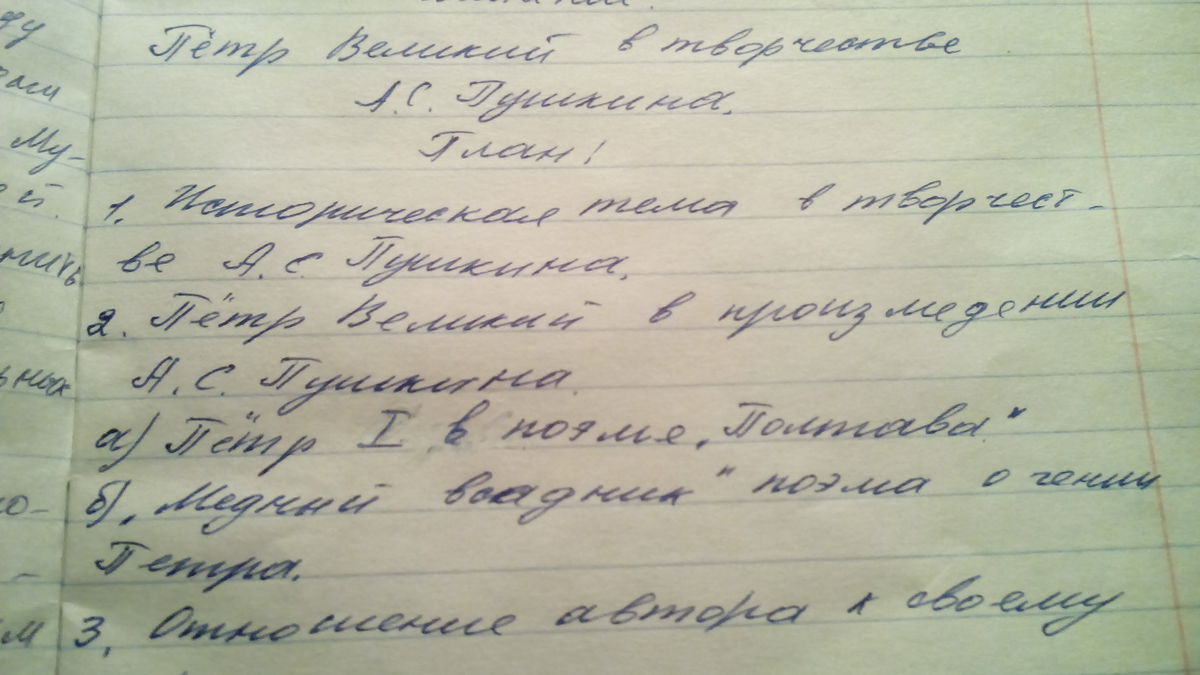 Пётр Великий в творчестве
А.С. Пушкина.
План:
1. Историческая тема в творчест-
ве А.С. Пушкина.
2. Пётр Великий в произмедении
А.С. Пушкина.
а) Пётр I в поэме „Полтава"
б) „Медный всадник" поэма о гении
Петра.
3. Отношение автора к своему